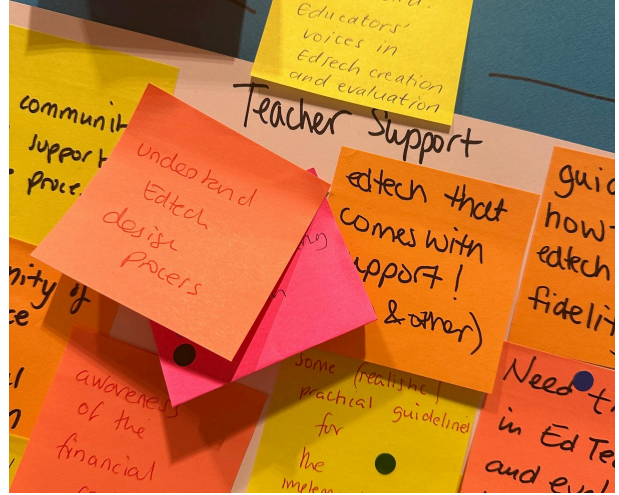 Educators'
voices in
EdTech creation
and evaluation
Teacher Support
communit
support
proce
understand
Edtech
desisr
process
edtech that
comes with
upport!
& other)
guid
how
edtech
fidelit
nity of
ce
awareness
of the
financial
some (realistic)
practical guidelines
for
the
implem
Need t
in Ed Te
and eval